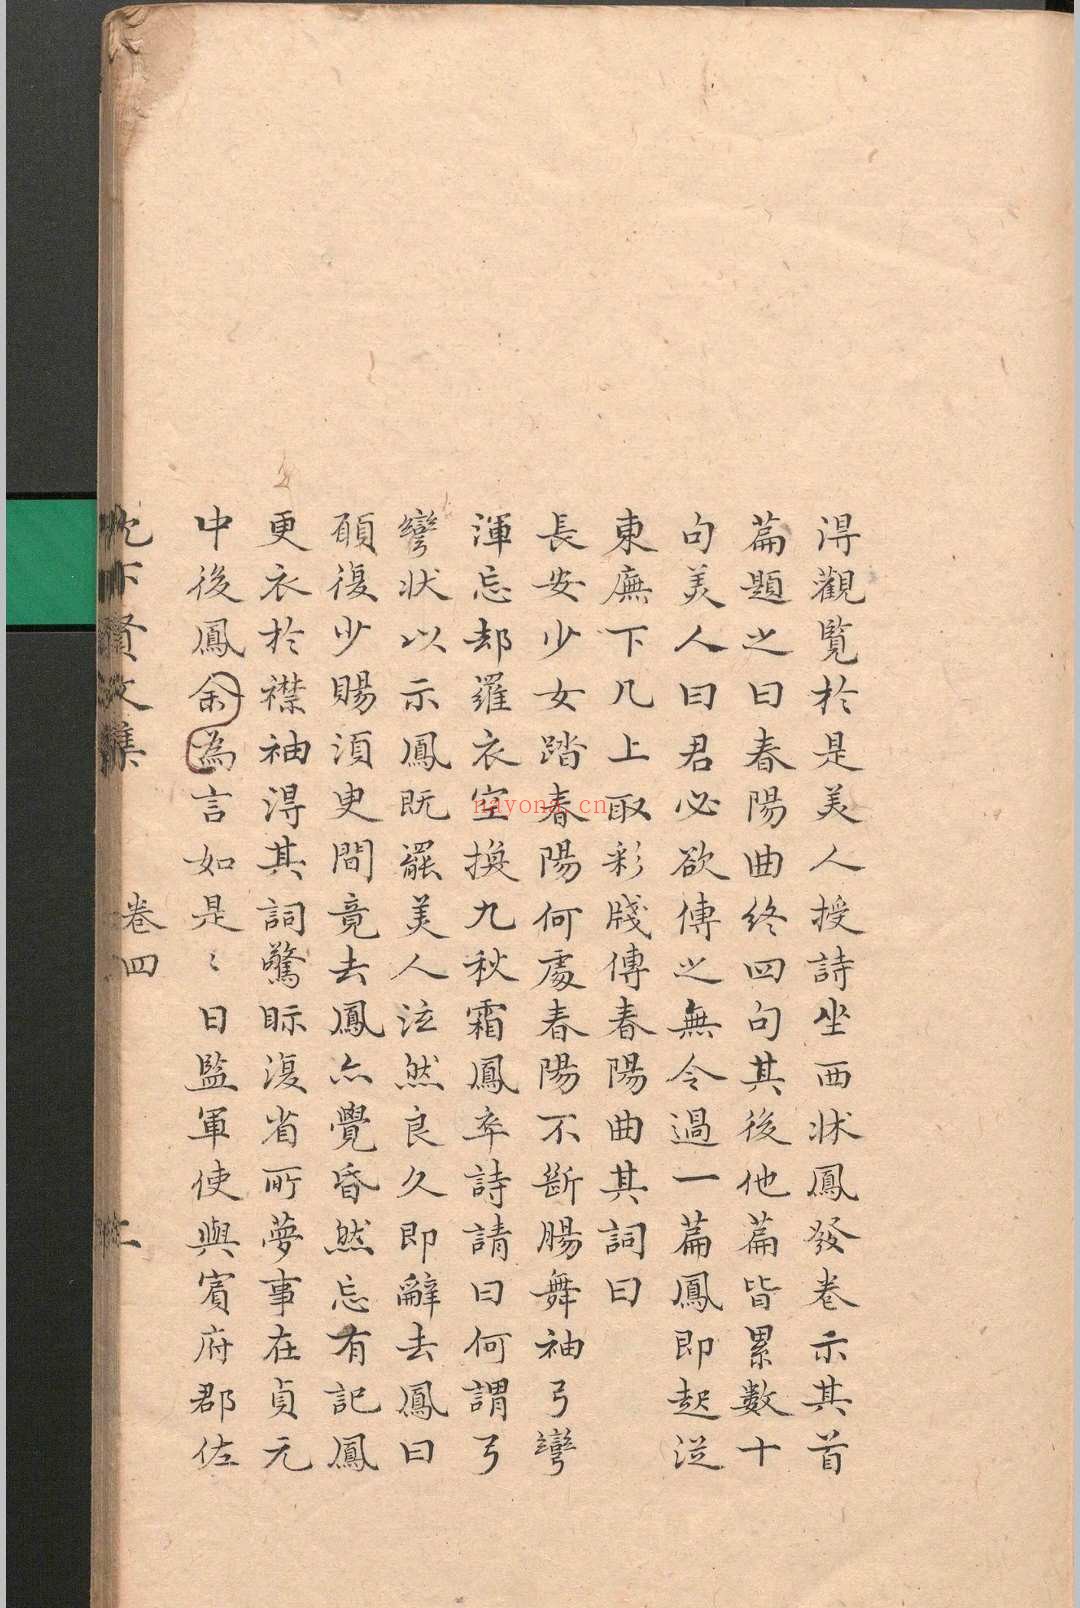 得觀覽於是美人授詩坐西牀鳳發卷示其首
篇題之曰春陽曲終四句其後他篇皆累數十
句美人曰君必欲傳之無令過一篇鳳即起從
東廡下几上取彩牋傳春陽曲其詞曰
長安少女踏春陽何處春陽不斷腸舞袖弓彎
渾忘却羅衣空換九秋霜鳳卒詩請曰何謂弓
彎狀以示鳳既罷美人泣然良久即辭去鳳曰
願復少賜須臾間竟去鳳亦覺昏然忘有記鳳
更衣於襟袖得其詞驚眎復省所夢事在貞元
中後鳳余為言如是〻日監軍使與賓府郡佐
沈下賢文集 卷四 上
nayona.cn